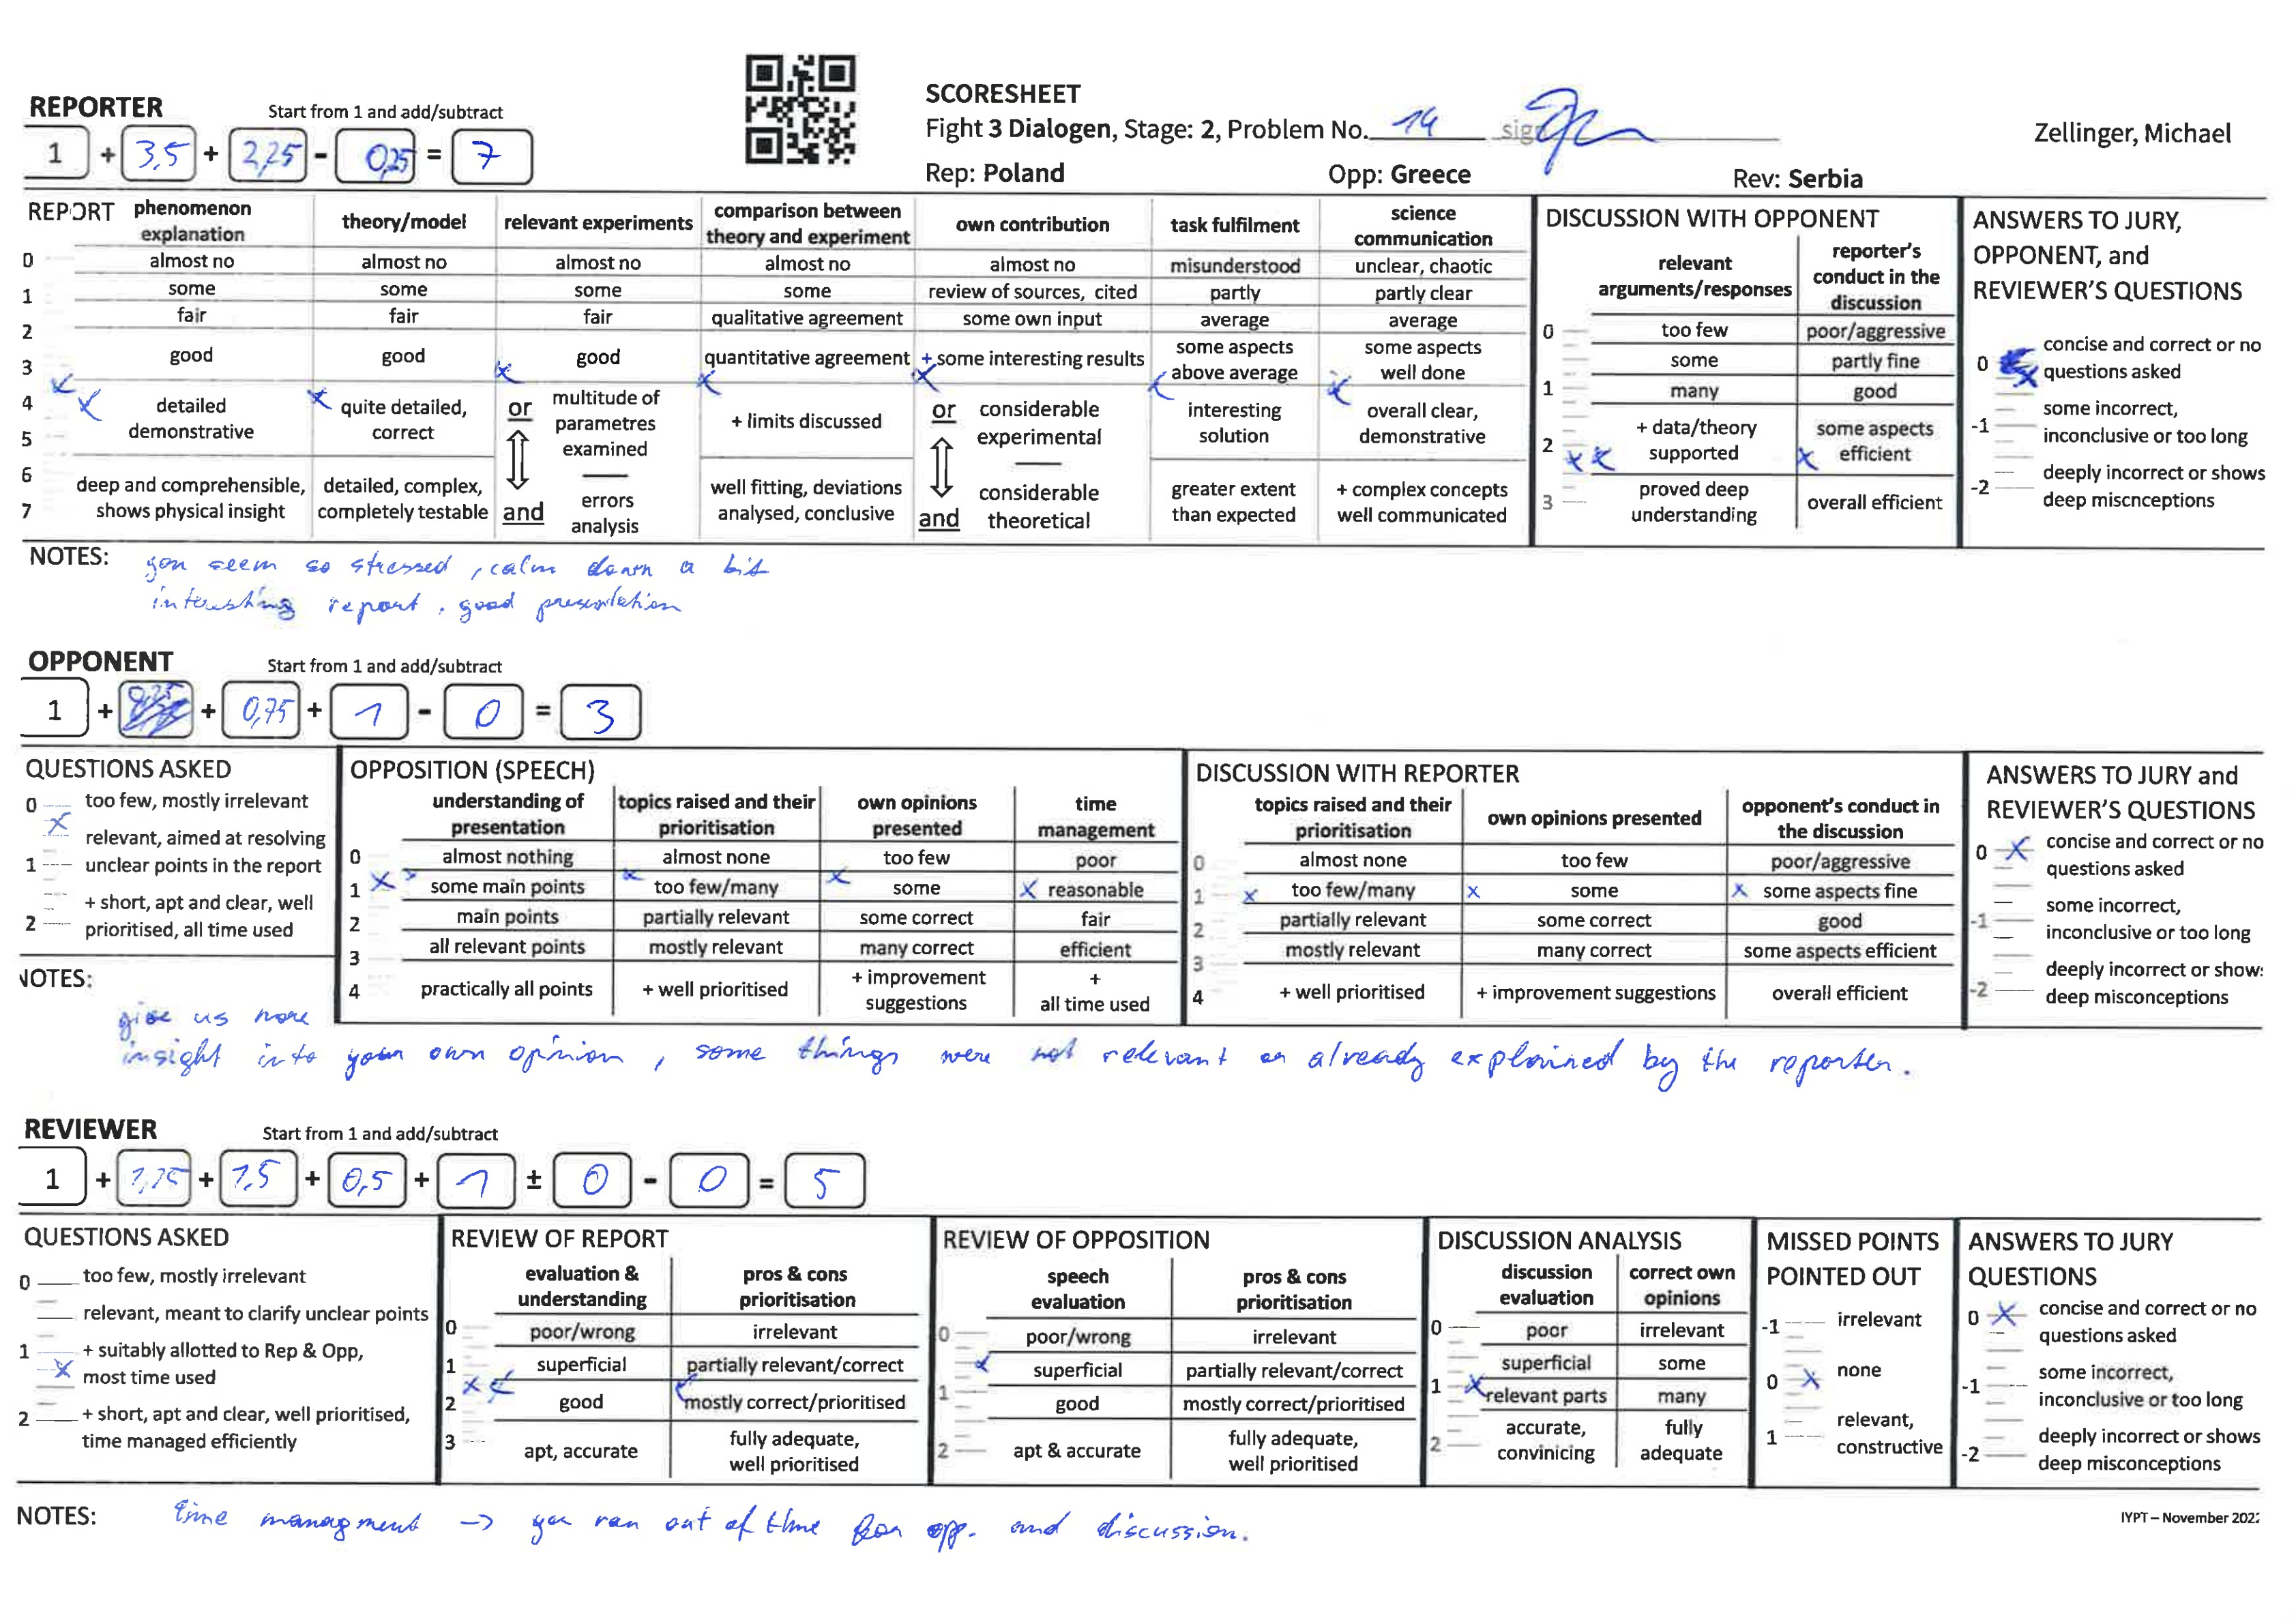 REPORTER Start from 1 and add/subtract
1 + 3,5 + 2,25 - 0,25 = 7
SCORESHEET
Fight 3 Dialogen, Stage: 2, Problem No. 14 sign
Zellinger, Michael
Rep: Poland Opp: Greece Rev: Serbia
REPORT phenomenon explanation theory/model relevant experiments comparison between theory and experiment own contribution task fulfilment science communication
0 almost no almost no almost no almost no almost no misunderstood unclear, chaotic
1 some some some some review of sources, cited partly partly clear
2 fair fair fair qualitative agreement some own input average average
3 good good good quantitative agreement + some interesting results some aspects above average some aspects well done
4 detailed demonstrative quite detailed, correct or multitude of parametres examined + limits discussed or considerable experimental interesting solution overall clear, demonstrative
5
6 deep and comprehensible, shows physical insight detailed, complex, completely testable and errors analysis well fitting, deviations analysed, conclusive and considerable theoretical greater extent than expected + complex concepts well communicated
7
DISCUSSION WITH OPPONENT
relevant arguments/responses reporter's conduct in the discussion
0 too few poor/aggressive
some partly fine
1 many good
2 + data/theory supported some aspects efficient
3 proved deep understanding overall efficient
ANSWERS TO JURY, OPPONENT, and REVIEWER'S QUESTIONS
0 concise and correct or no questions asked
-1 some incorrect, inconclusive or too long
-2 deeply incorrect or shows deep miscnceptions
NOTES: you seem so stressed, calm down a bit
interesting report, good presentation
OPPONENT Start from 1 and add/subtract
1 + 0,25 + 0,75 + 1 - 0 = 3
QUESTIONS ASKED
0 too few, mostly irrelevant
relevant, aimed at resolving
1 unclear points in the report
+ short, apt and clear, well
2 prioritised, all time used
OPPOSITION (SPEECH)
understanding of presentation topics raised and their prioritisation own opinions presented time management
0 almost nothing almost none too few poor
1 some main points too few/many some reasonable
2 main points partially relevant some correct fair
3 all relevant points mostly relevant many correct efficient
4 practically all points + well prioritised + improvement suggestions + all time used
DISCUSSION WITH REPORTER
topics raised and their prioritisation own opinions presented opponent's conduct in the discussion
0 almost none too few poor/aggressive
1 too few/many some some aspects fine
2 partially relevant some correct good
3 mostly relevant many correct some aspects efficient
4 + well prioritised + improvement suggestions overall efficient
ANSWERS TO JURY and REVIEWER'S QUESTIONS
0 concise and correct or no questions asked
-1 some incorrect, inconclusive or too long
-2 deeply incorrect or show: deep misconceptions
NOTES: give us more
insight into your own opinion, some things were not relevant or already explained by the reporter.
REVIEWER Start from 1 and add/subtract
1 + 1,25 + 1,5 + 0,5 + 1 ± 0 - 0 = 5
QUESTIONS ASKED
0 too few, mostly irrelevant
relevant, meant to clarify unclear points
1 + suitably allotted to Rep & Opp,
most time used
2 + short, apt and clear, well prioritised,
time managed efficiently
REVIEW OF REPORT
evaluation & understanding pros & cons prioritisation
0 poor/wrong irrelevant
1 superficial partially relevant/correct
2 good mostly correct/prioritised
3 apt, accurate fully adequate, well prioritised
REVIEW OF OPPOSITION
speech evaluation pros & cons prioritisation
0 poor/wrong irrelevant
superficial partially relevant/correct
1 good mostly correct/prioritised
2 apt & accurate fully adequate, well prioritised
DISCUSSION ANALYSIS
discussion evaluation correct own opinions
0 poor irrelevant
superficial some
1 relevant parts many
2 accurate, convinicing fully adequate
MISSED POINTS POINTED OUT
-1 irrelevant
0 none
1 relevant, constructive
ANSWERS TO JURY QUESTIONS
0 concise and correct or no questions asked
-1 some incorrect, inconclusive or too long
-2 deeply incorrect or shows deep misconceptions
NOTES: time managment -> you ran out of time for opp. and discussion.
IYPT – November 2022